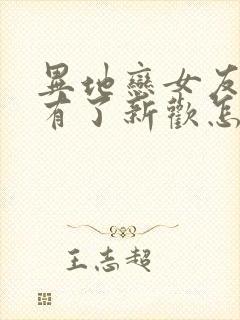 異地戀女友
有了新歡怎
王志超